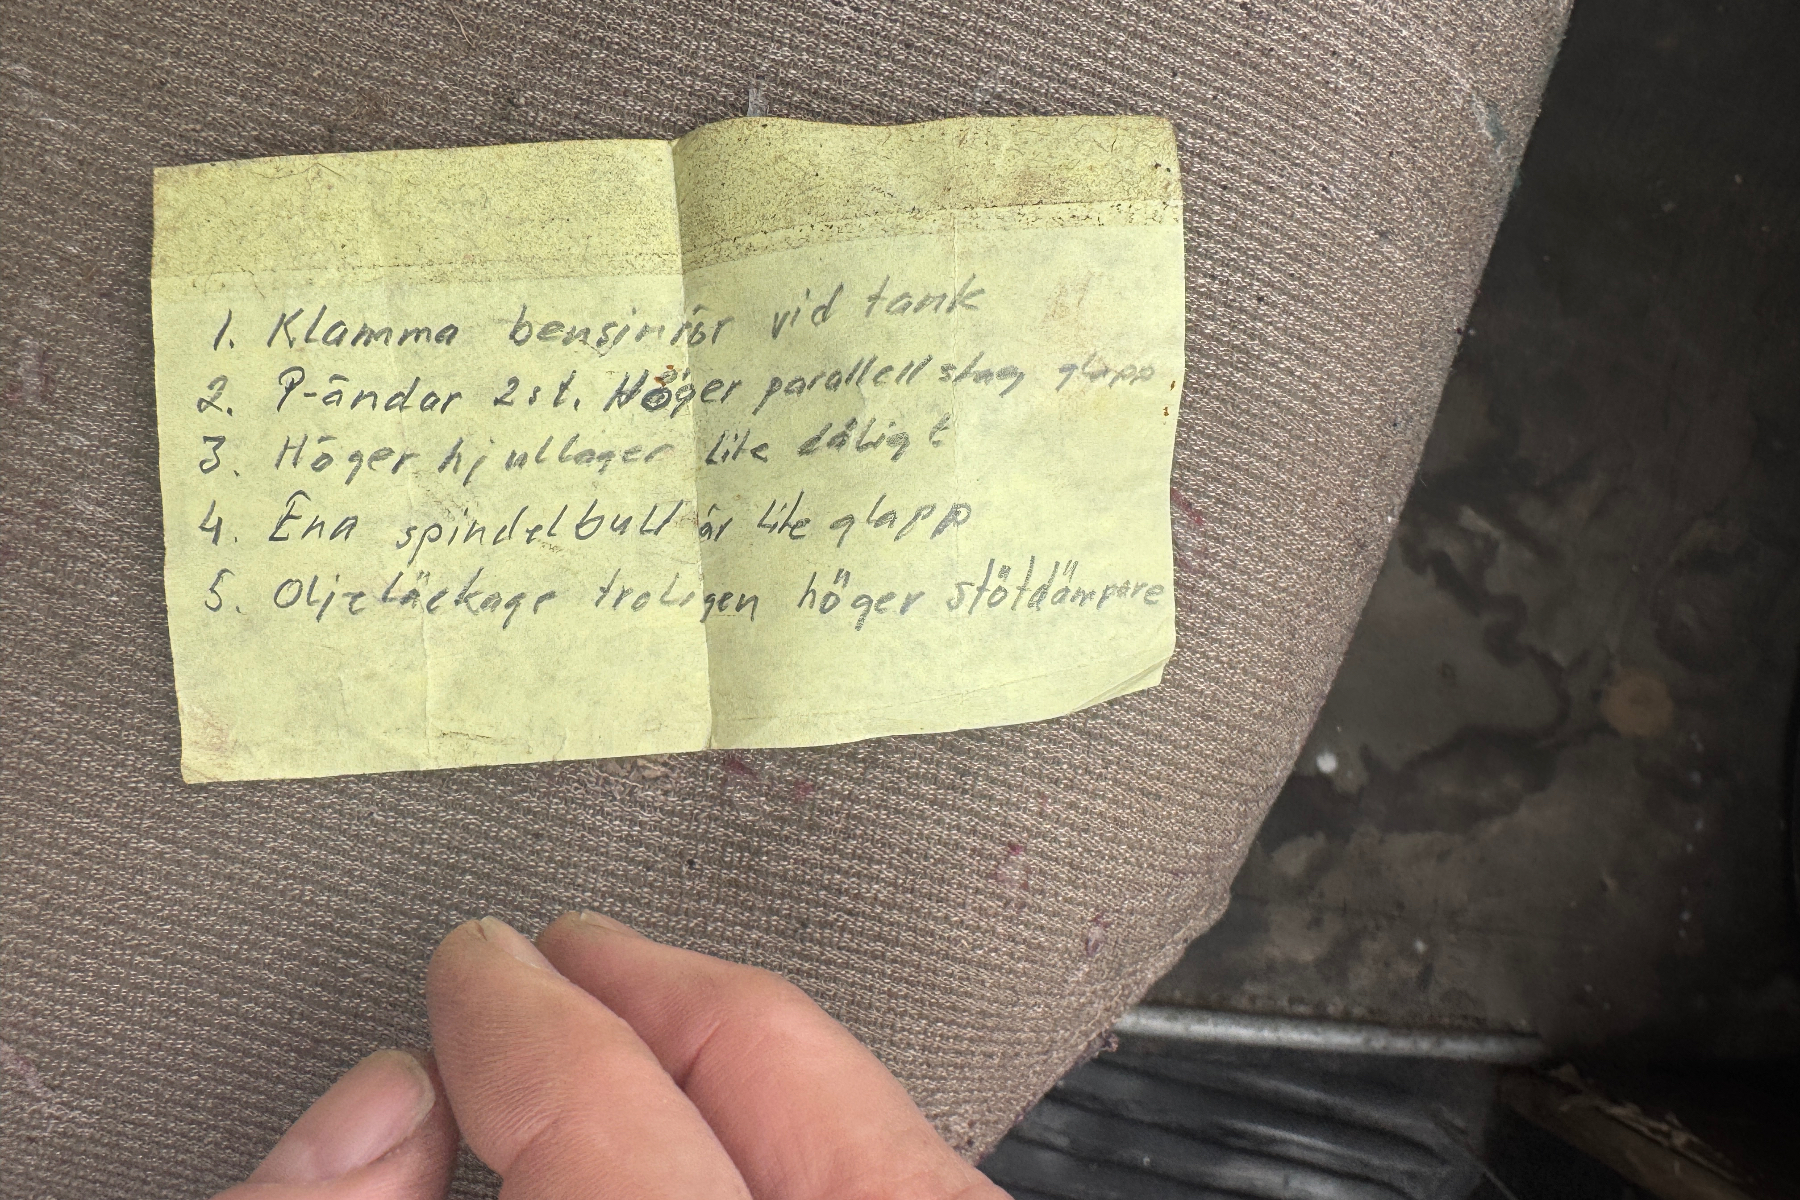 1. Klamma bensinrör vid tank
2. P-ändar 2st. Höger parallellstag glapp
3. Höger hjullager lite dåligt
4. Ena spindelbult är lite glapp
5. Oljeläckage troligen höger stötdämpare